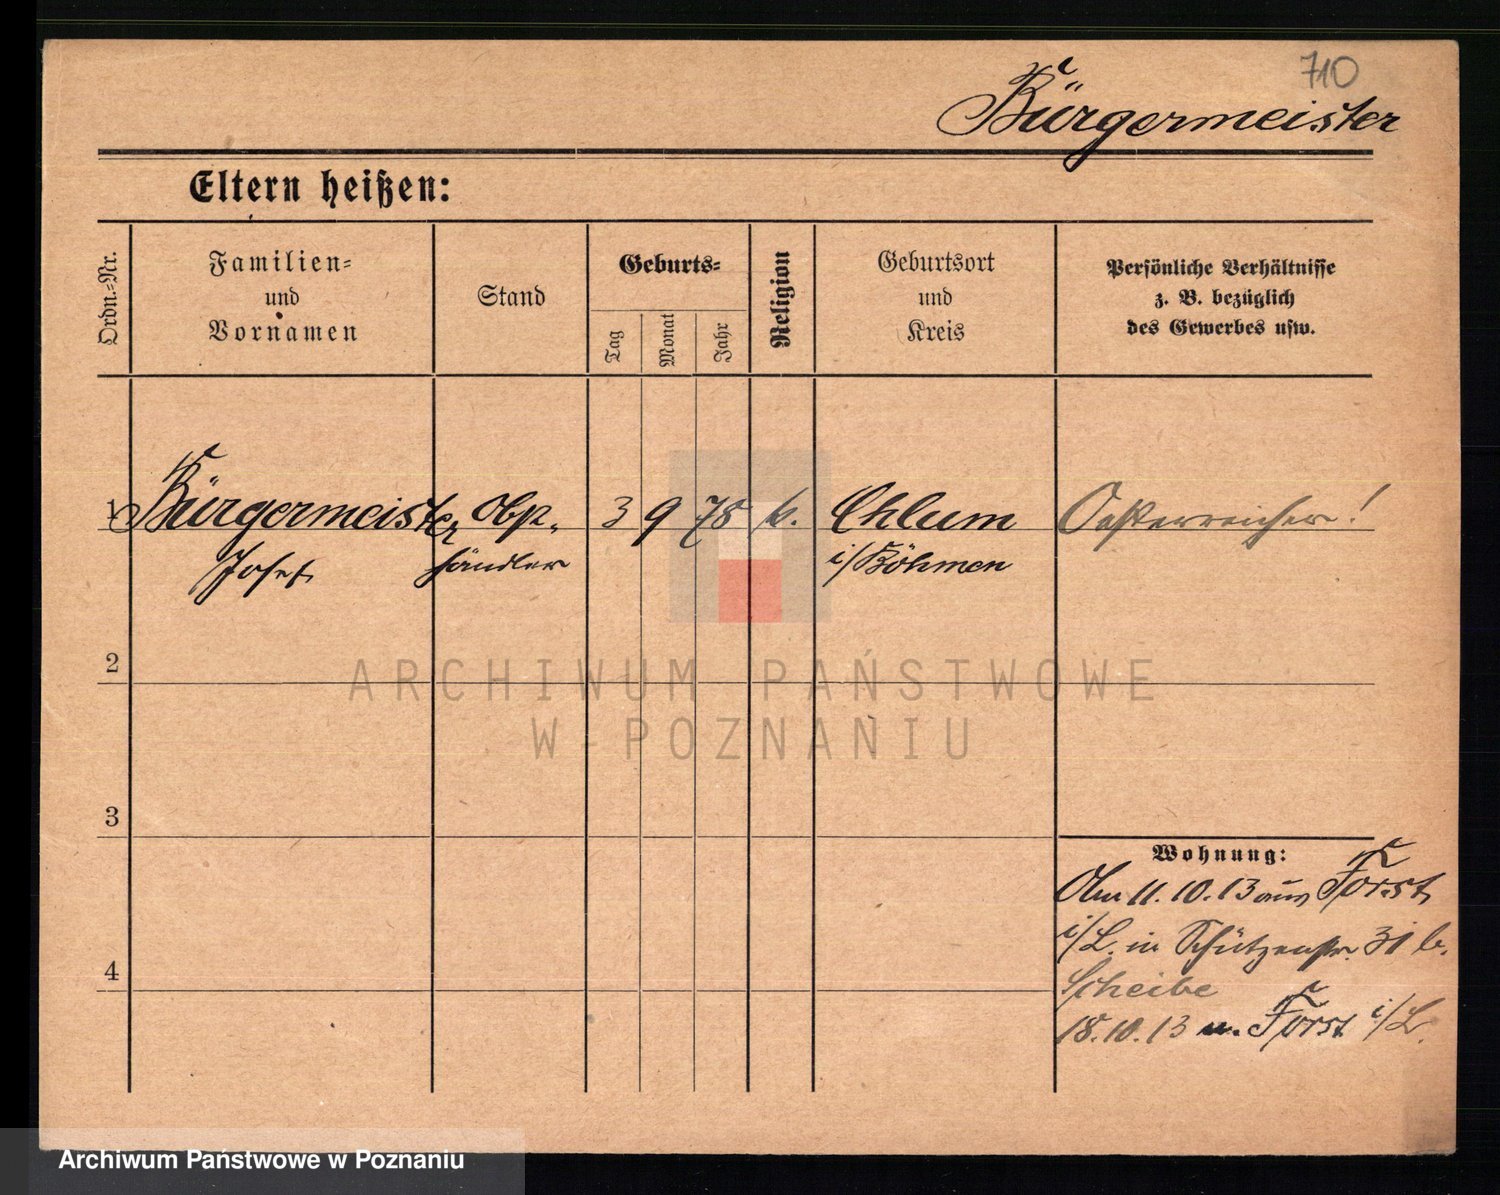 710
Bürgermeister
Eltern heißen:
Ordn.-Nr.
Familien-
und
Vornamen
Stand
Geburts-
Tag
Monat
Jahr
Religion
Geburtsort
und
Kreis
Persönliche Verhältnisse
z. B. bezüglich
des Gewerbes usw.
1 Bürgermeister Obst- 3 9 78 k. Chlum Oesterreicher!
Josef händler i/Böhmen
2
3
4
Wohnung:
11.10.13 aus Forst
i/L. in Schützenstr. 31 b.
Scheibe
18.10.13 n. Forst i/L.
ARCHIWUM PAŃSTWOWE
W POZNANIU
Archiwum Państwowe w Poznaniu